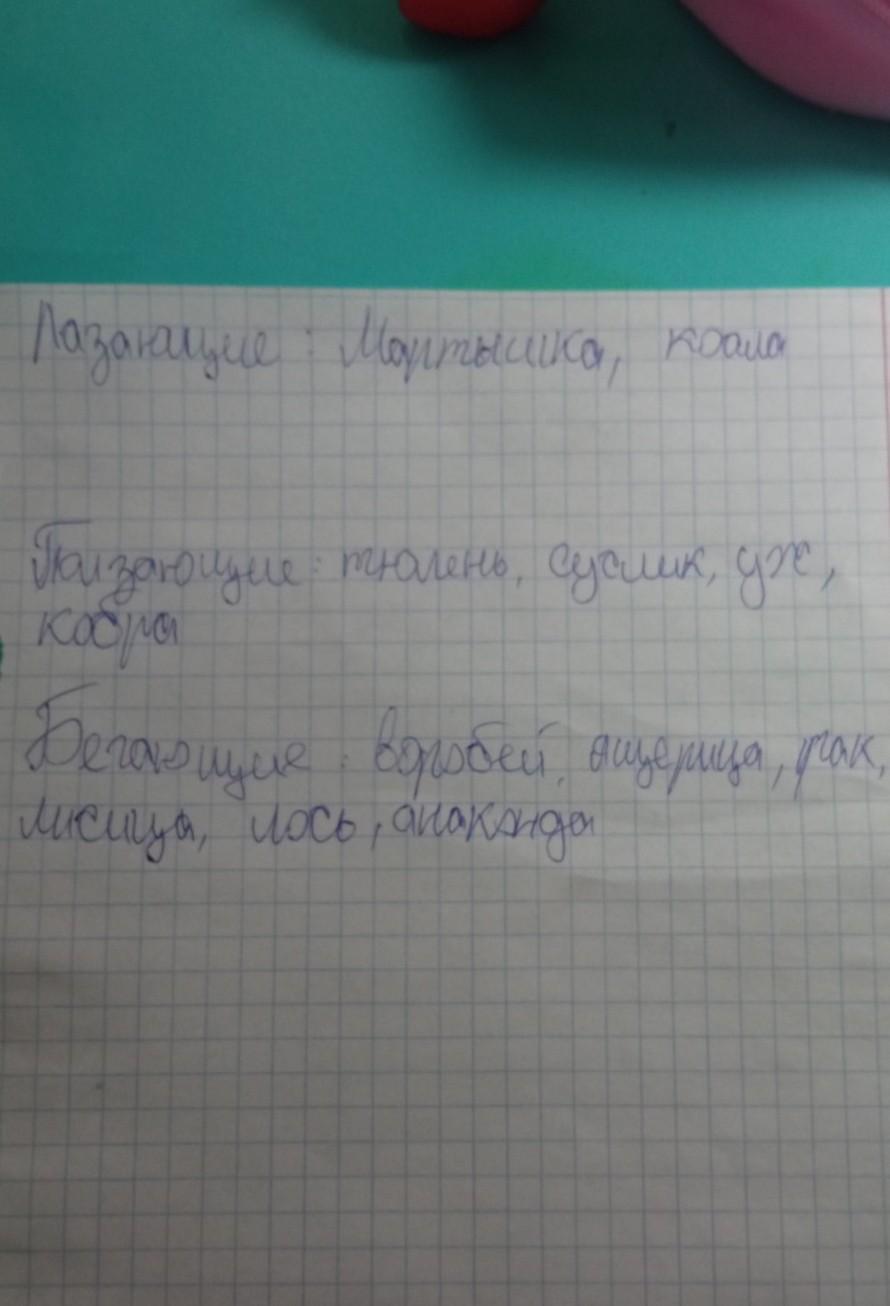 Лазающие: Мартышка, коала
Ползающие: тюлень, суслик, уж,
кобра
Бегающие: воробей, ящерица, рак,
лисица, лось, анаконда